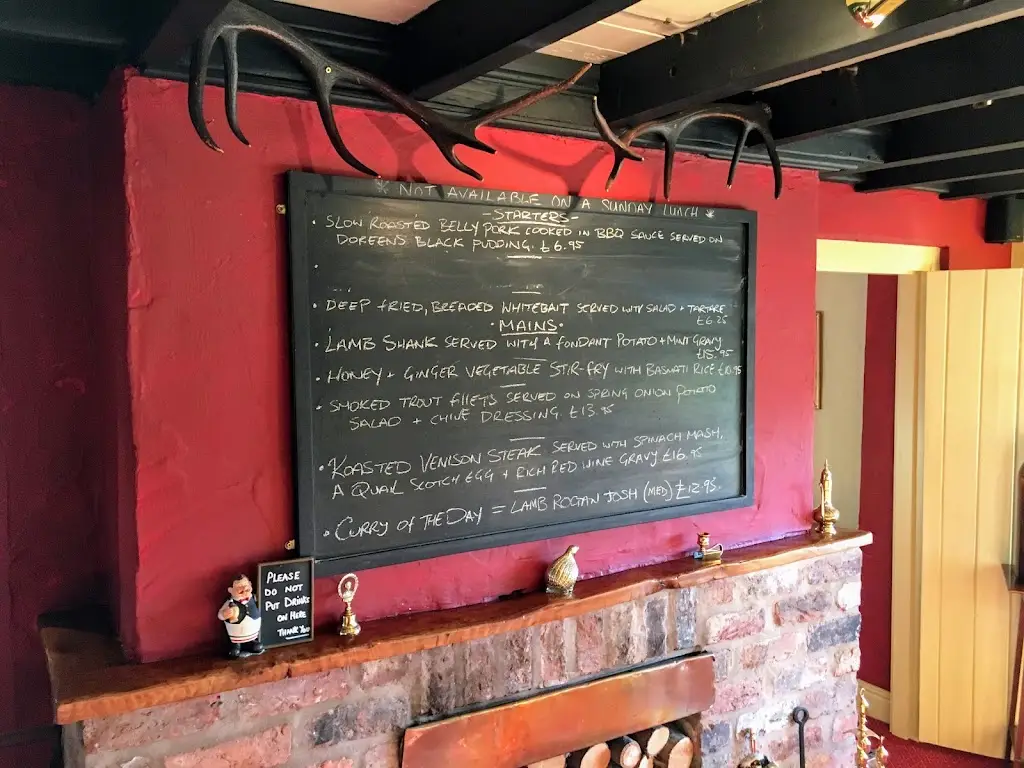 * NOT AVAILABLE ON A SUNDAY LUNCH *
-STARTERS-
• SLOW ROASTED BELLY PORK COOKED IN BBQ SAUCE SERVED ON
DOREEN'S BLACK PUDDING. £6.95
•
• DEEP FRIED, BREADED WHITEBAIT SERVED WITH SALAD + TARTARE
£6.25
• MAINS •
• LAMB SHANK SERVED WITH A FONDANT POTATO + MINT GRAVY
£15.95
• HONEY + GINGER VEGETABLE STIR-FRY WITH BASMATI RICE £10.95
• SMOKED TROUT FILLETS SERVED ON SPRING ONION POTATO
SALAD + CHIVE DRESSING. £13.95
• ROASTED VENISON STEAK SERVED WITH SPINACH MASH,
A QUAIL SCOTCH EGG + RICH RED WINE GRAVY £16.95
• CURRY OF THE DAY = LAMB ROGAN JOSH (MED) £12.95.
PLEASE
DO NOT
PUT DRINKS
ON HERE
THANK YOU